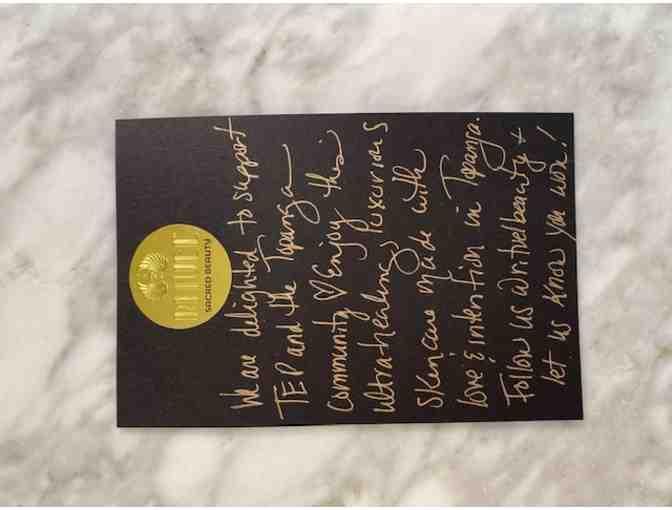 RITUEL
SACRED BEAUTY
We are delighted to support
TEP and the Topanga
community ♡ Enjoy this
ultra-healing, luxurious
skincare made with
love & intention in Topanga.
Follow us @rituelbeauty +
let us know you won!